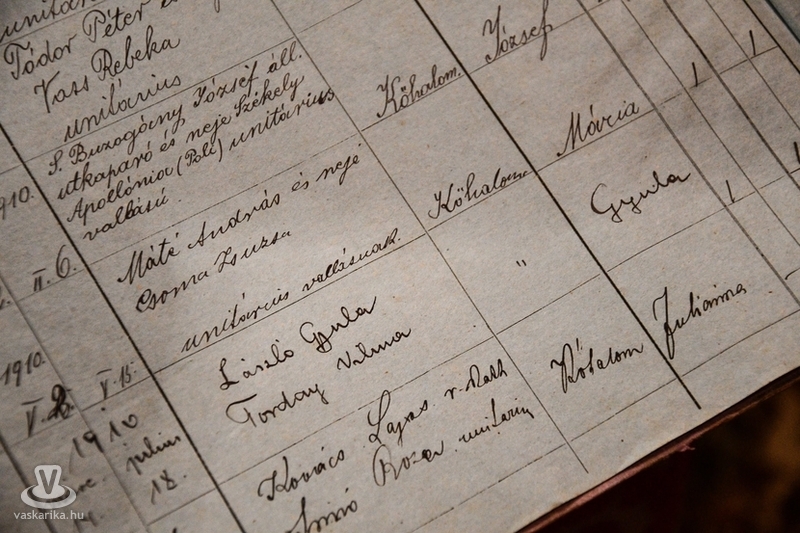 unitár
Tódor Péter é
Vass Rebeka
unitárius
József
1910.
S. Buzogány József áll.
utkaparó és neje Székely
Apollónia (Poli) unitárius
vallású.
Kőhalom.
Mária
1
1
II. 6.
Máté András és neje
Csoma Zsuzsa
unitárius vallásúak.
Kőhalom
Gyula
1
1
1910.
V. 2.
V. 15.
László Gyula
Torday Vilma
"
Julianna
1910
julius
18.
Kovács Lajos r. kath
Róza unitária
vaskarika.hu